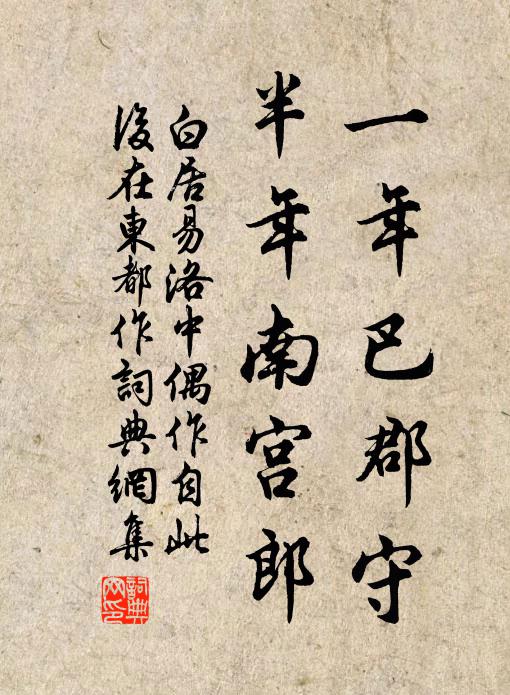 一年巴郡守
半年南宮郎
白居易洛中偶作自此
後在東都作詞典網集
詞典網印